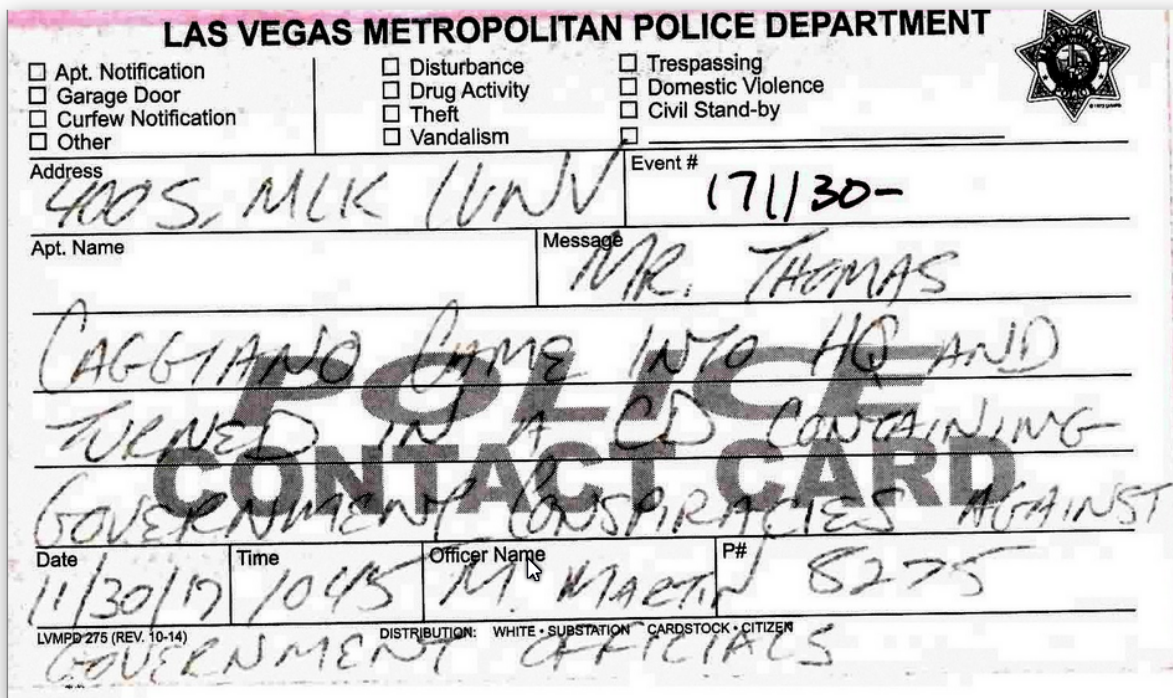 LAS VEGAS METROPOLITAN POLICE DEPARTMENT
☐ Apt. Notification
☐ Garage Door
☐ Curfew Notification
☐ Other
☐ Disturbance
☐ Drug Activity
☐ Theft
☐ Vandalism
☐ Trespassing
☐ Domestic Violence
☐ Civil Stand-by
☐
Address
400 S. MLK LVNV
Event #
171130-
Apt. Name
Message
MR. THOMAS
CAGGIANO CAME INTO HQ AND
TURNED IN A CD CONTAINING
GOVERNMENT CONSPIRACIES AGAINST
POLICE
CONTACT CARD
Date
11/30/17
Time
1045
Officer Name
M. MARTIN
P#
8275
LVMPD 275 (REV. 10-14)
DISTRIBUTION: WHITE • SUBSTATION CARDSTOCK • CITIZEN
GOVERNMENT OFFICIALS